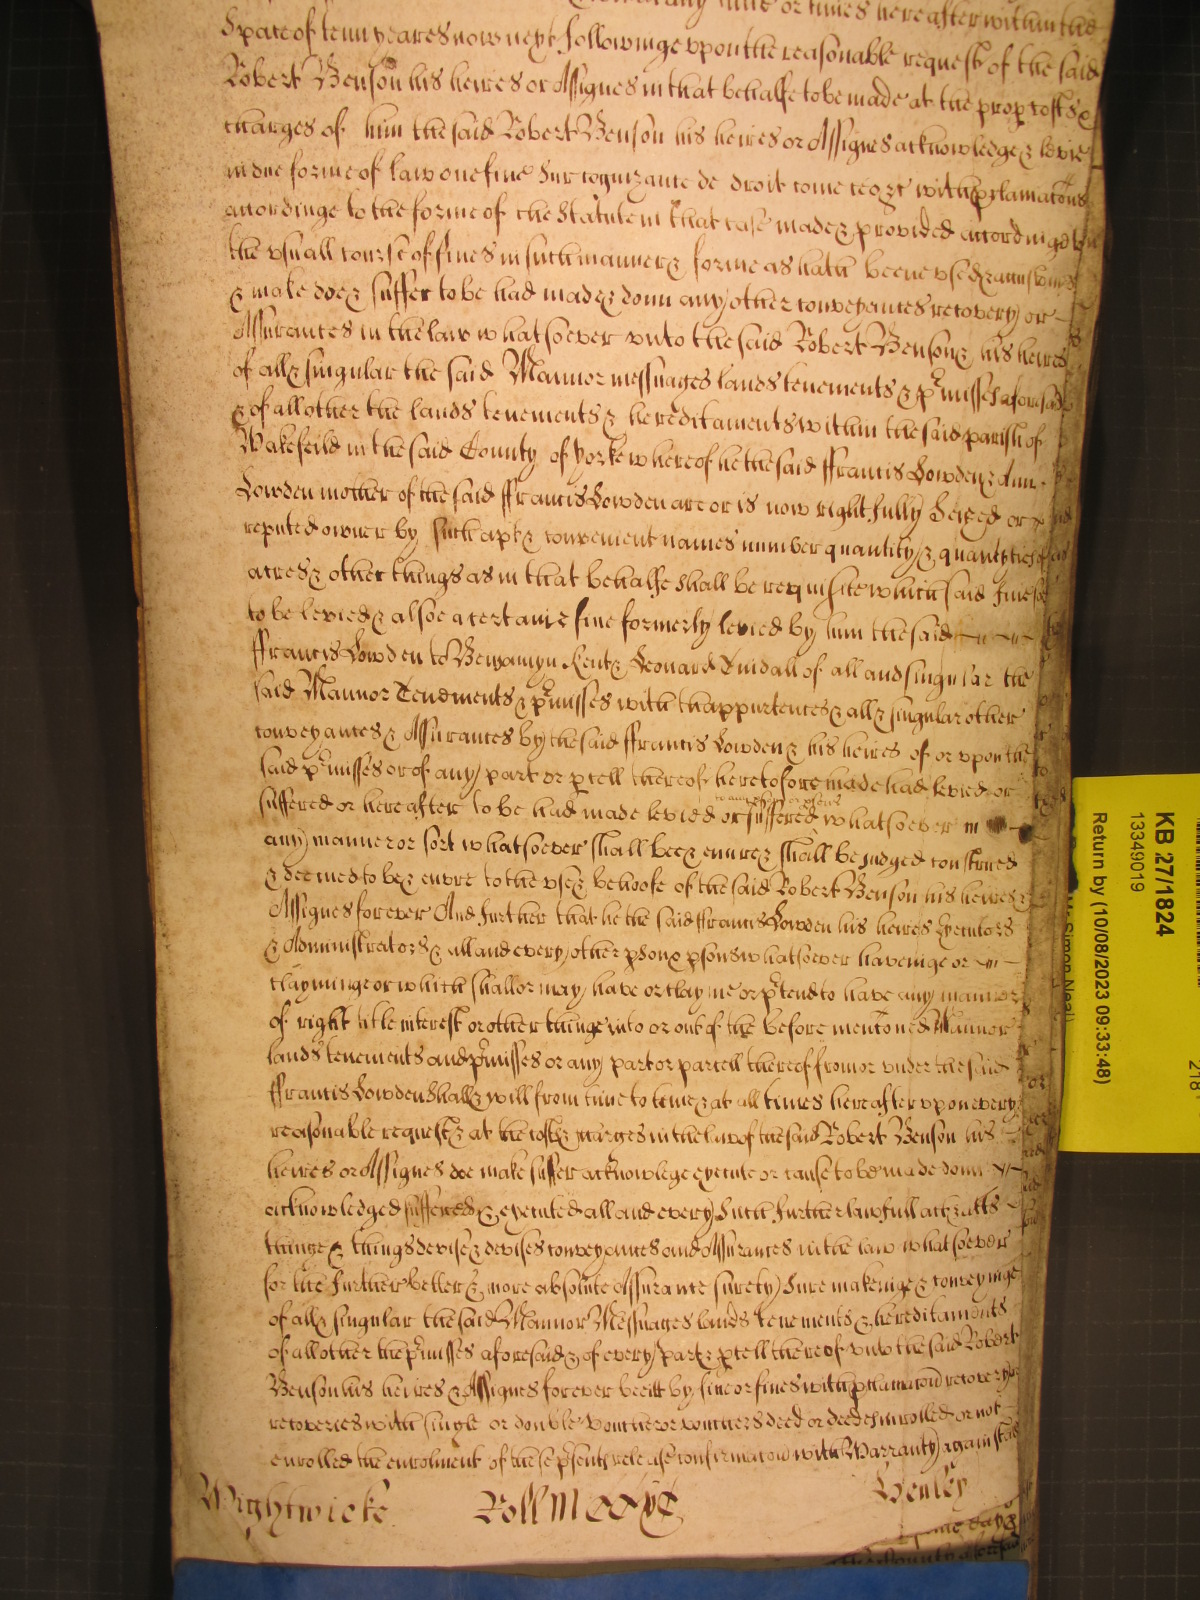 any time or times hereafter within the
Space of tenn yeares now next followinge upon the reasonable request of the said
Robert Benson his heires or Assignes in that behalfe to be made at the prop costs &
charges of him the said Robert Benson his heires or Assignes acknowledge & levie
in due forme of law one fine Sur cognizance de droit come ceo &c with pclamacons
accordinge to the forme of the Statute in that case made & provided accordinge to
the usuall course of fines in such manner & forme as hath beene used &
& make doe & suffer to be had made & donn any other conveyances recovery or
Assurances in the law whatsoever unto the said Robert Benson & his heires
of all & singular the said Mannor messuages lands tenements & pmisses aforesaid
& of all other the lands tenements & hereditaments within the said parish of
Wakefeild in the said County of Yorke whereof he the said ffrancis Lowden & Ann
Lowden mother of the said ffrancis Lowden are or is now rightfully Seized or
reputed owner by such apt & convenient names number quantity & quantyties of
acres & other things as in that behalfe shall be requisite which said fine soe
to be levied & alsoe a certaine fine formerly levied by him the said
ffrancis Lowden to Beniamyn Kent & Leonard Tindall of all and singular the
said Mannor Tenements & pmisses with thappurtences & all & singular other
conveyances & Assurances by the said ffrancis Lowden & his heires of or upon the
said pmisses or of any part or pcell thereof heretofore made had levied or
suffered or hereafter to be had made levied or suffered whatsoever in
any manner or sort whatsoever shall bee & enure & shall be iudged construed
& deemed to be & enure to the use & behoofe of the said Robert Benson his heires &
Assignes forever And further that he the said ffrancis Lowden his heires Executors
& Administrators & all and every other pson & psons whatsoever haveinge or
clayminge or which shall or may have or clayme or ptend to have any mannor
of right title interest or other thinge into or out of the before mentoned Mannor
lands tenements and pmisses or any part or parcell thereof from or under the said
ffrancis Lowden shall & will from time to time & at all times hereafter upon every
reasonable request & at the costs & charges in the law of the said Robert Benson his
heires or Assignes doe make suffer acknowlege execute or cause to be made donn
acknowledged suffered & executed all and every Such further lawfull act & acts
thinge & things devise & devises conveyances and Assurances in the law whatsoever
for the further better & more absolute Assurance surety Sure makeinge & conveyinge
of all & singular the said Mannor Messuages lands tenements & hereditaments
of all other the pmisses aforesaid & of every part & pcell thereof unto the said Robert
Benson his heires & Assignes forever bee itt by fine or fines with pclamacon recovery or
recoveries with single or double voucher or vouchers deed or deeds inrolled or not
enrolled the enrolment of these psents release confirmacon with Warranty against
Wightwicke Roll Henley
KB 27/1824
13349019
Return by (10/08/2023 09:33:48)